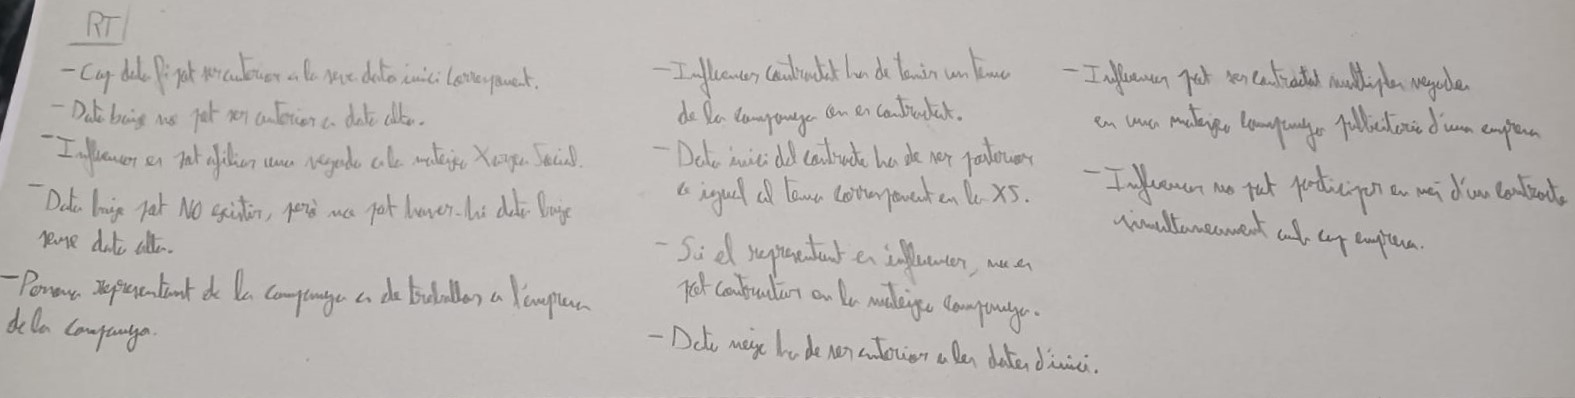 RT
- Cap data fi pot ser anterior a la seva data inici corresponent.
- Data baixa no pot ser anterior a data alta.
- Influencer es pot afiliar una vegada a la mateixa Xarxa Social.
- Data baixa pot NO existir, però no pot haver-hi data baixa
sense data alta.
- Persona representant de la campanya a de treballar a l'empresa
de la campanya.
- Influencer contractat ha de tenir un tema
de la campanya on es contractat.
- Data inici del contracte ha de ser posterior
o igual al tema corresponent en la XS.
- Si el representant es influencer, no es
pot contractar en la mateixa campanya.
- Data neix ha de ser anterior a les dates d'inici.
- Influencer pot ser contractat multiples vegades
en una mateixa campanya publicitaria d'una empresa
- Influencer no pot participar en més d'un contracte
simultaneament amb cap empresa.